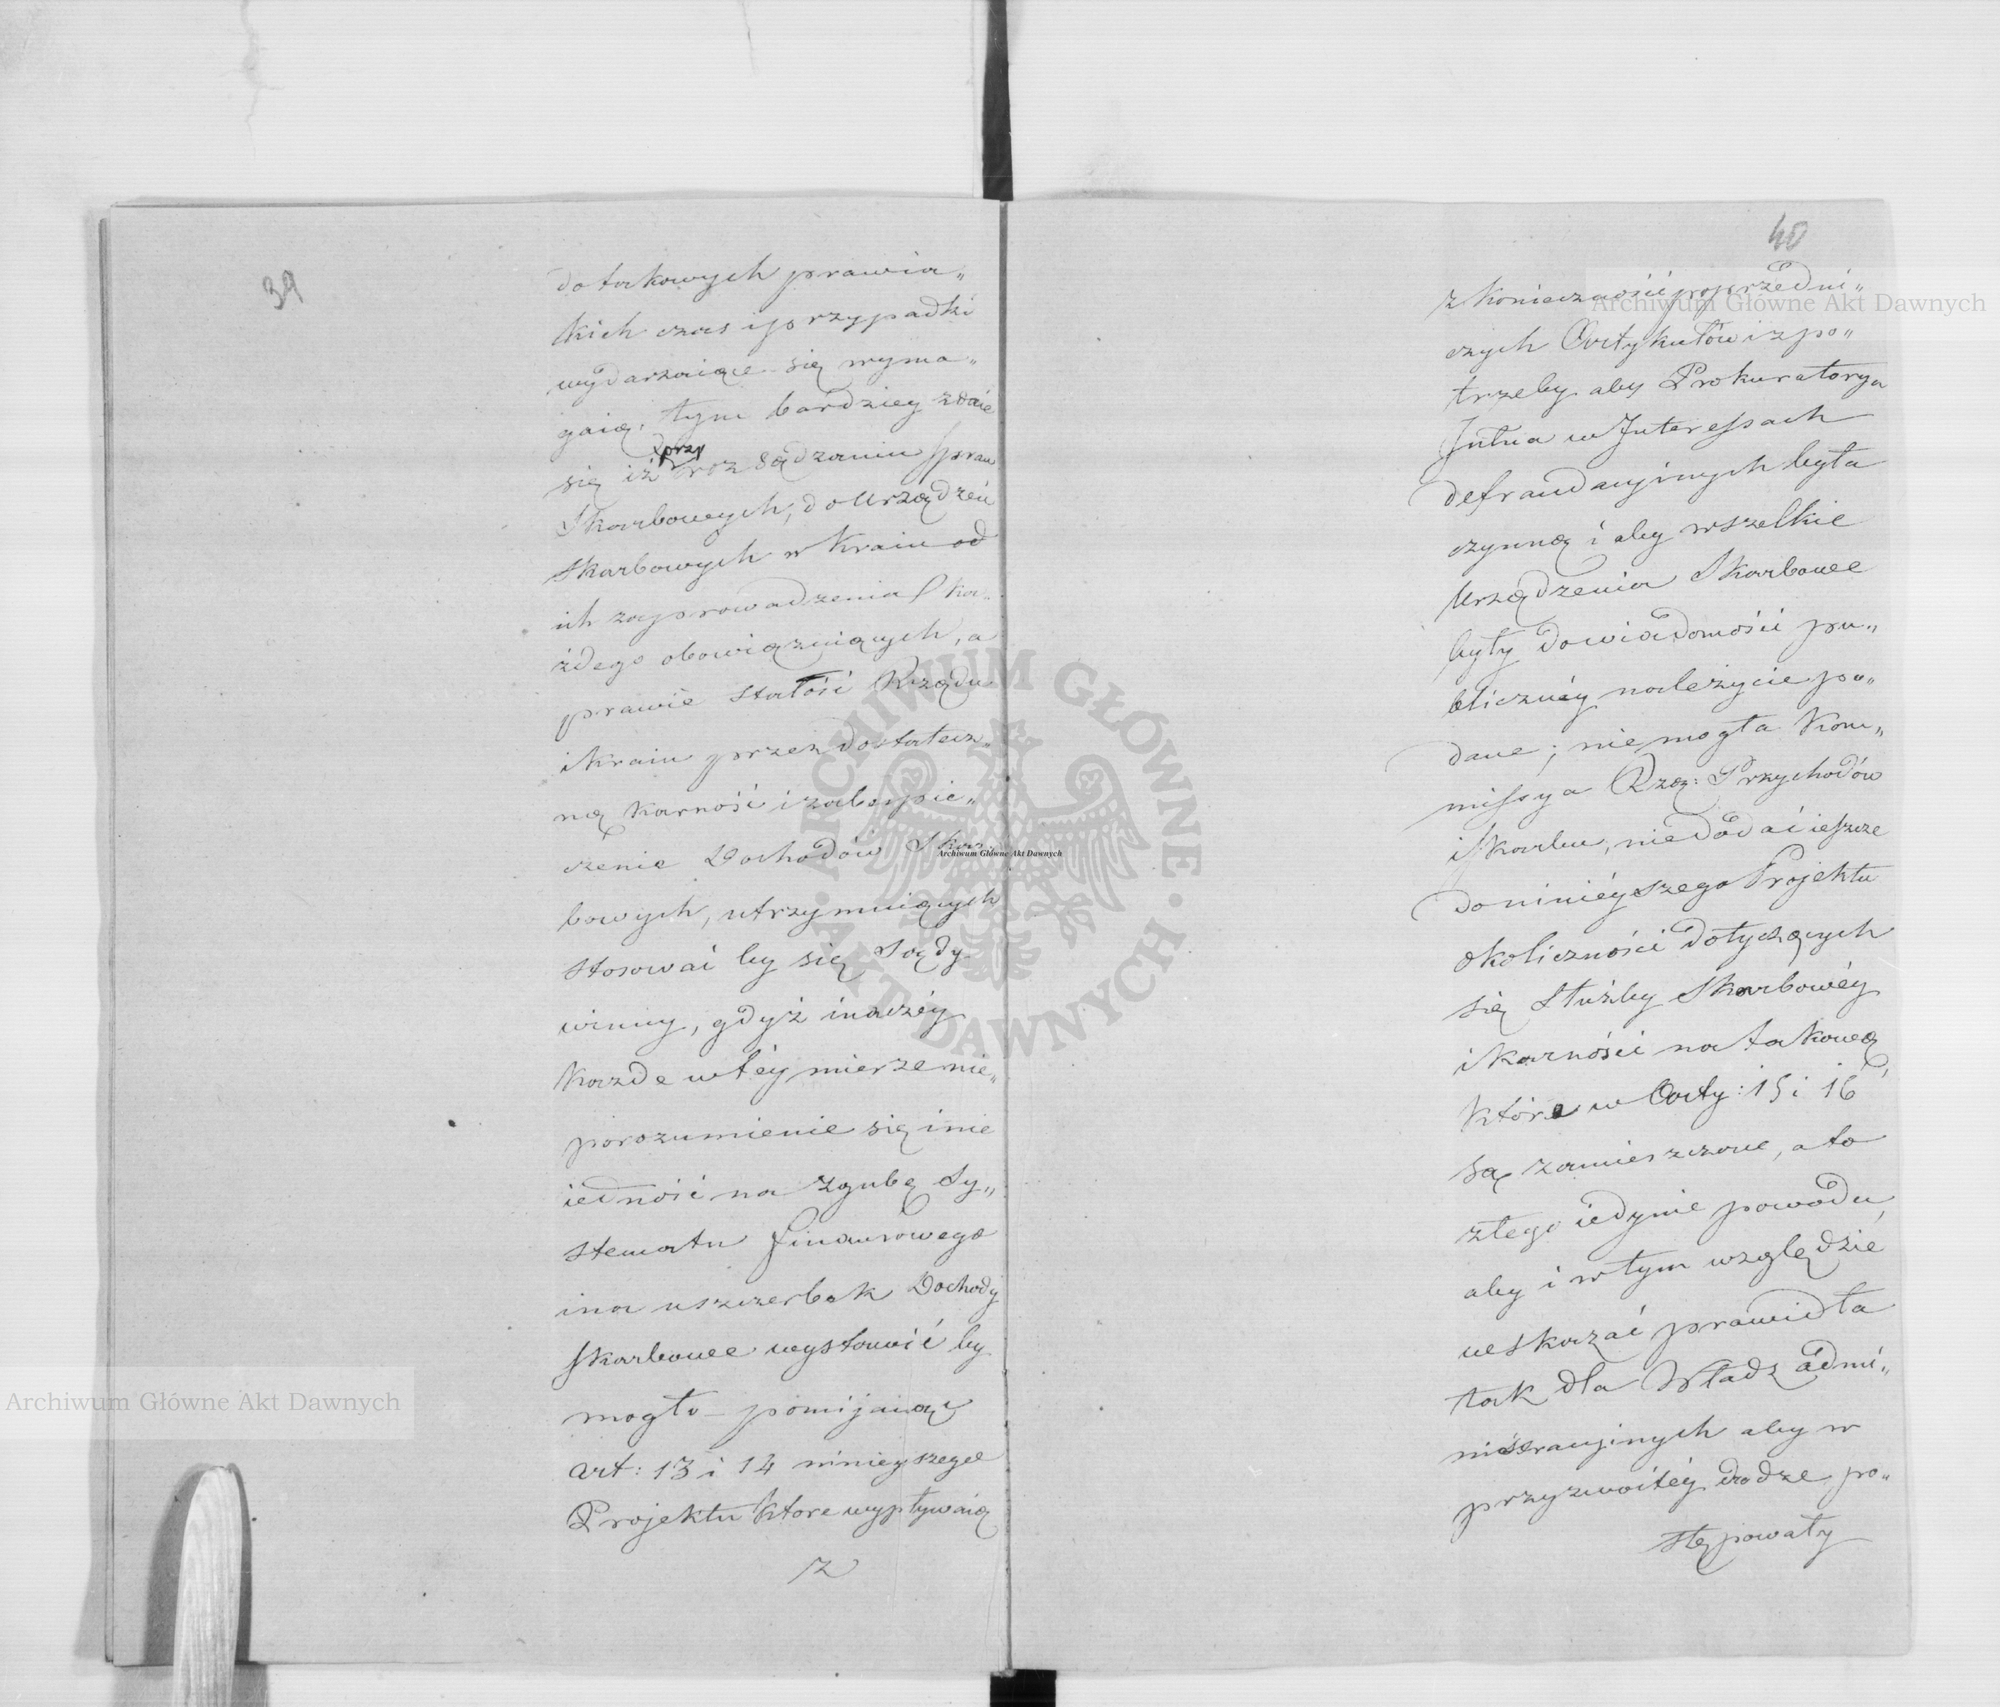 39
do takowych prawia„
kich czas i przypadki
wydarzaiące się wyma„
gaią, tym bardziey zdaie
się iż przy rozsądzaniu spraw
Skarbowych, do Urządzeń
skarbowych w Kraiu od
ich zaprowadzenia Ska„
żdego obowiązuiących, a
prawie stałość Rządu
i Kraiu przez dostatecz„
ną karność i zabespie„
czenie Dochodów Skar„
bowych, utrzymuiących
stosować by się Sądy
winny, gdyż inaczéy
Każde w téy mierze nie„
porozumienie się i nie
iedność na zgubę Sy„
stematu finansowego
i na uszczerbek Dochody
skarbowe wystawić by
mogło – pomijaiąc
art: 13 i 14 ninieyszego
Projektu które wypływaią
z
40
z konieczności poprzedni„
czych Artykułów i z po„
trzeby aby Prokuratorya
Jntna w Jnteressach
defraudacyinych była
czynną i aby wszelkie
Urządzenia Skarbowe
były do wiadomości pu„
bliczney należycie po„
dane; nie mogła Kom„
missya Rzą: Przychodów
i Skarbu, nie dodać ieszcze
do ninieyszego Projektu
okoliczności dotyczących
się Służby Skarbowéy
i karności na takową,
które w Arty: 15 i 16
są zamieszczone, a to
z tego iedynie powodu,
aby i w tym względzie
wskazać prawidła
tak dla Władz admi„
nistracyinych aby w
przyzwoitéy drodze po„
stępowały
Archiwum Główne Akt Dawnych
Archiwum Główne Akt Dawnych
Archiwum Główne Akt Dawnych
ARCHIWUM GŁÓWNE · AKT DAWNYCH ·